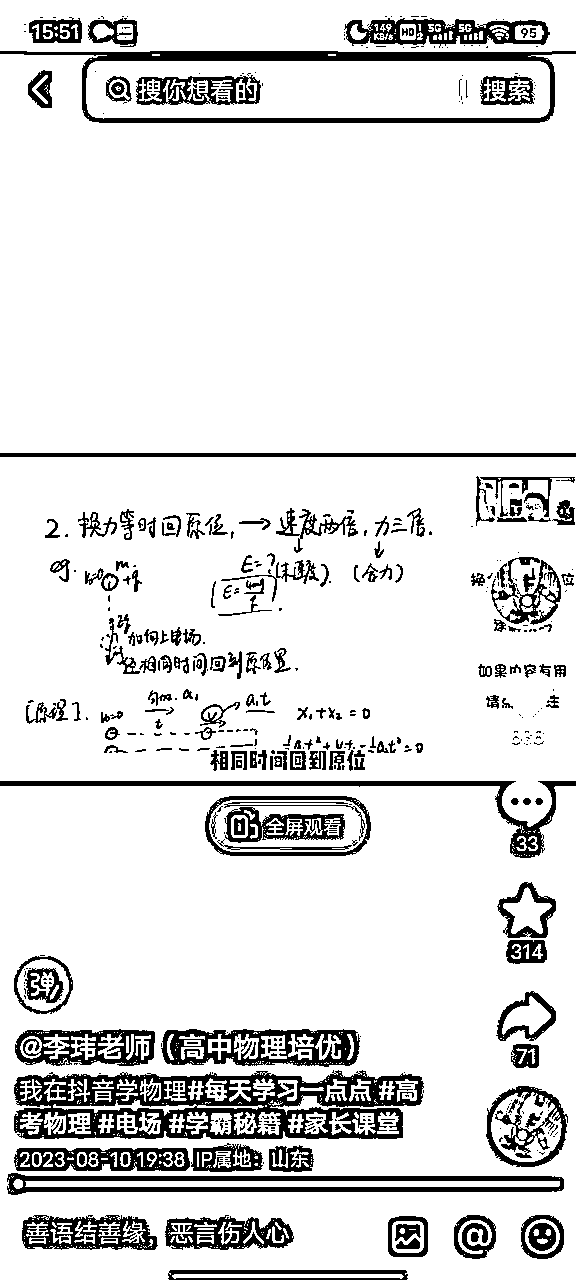 15:51 149 KB/s HD 5G 5G 95
搜你想看的 搜索
2. 换力等时回原位, → 速度两倍, 力三倍.
eg. v₀=0 m +q E=? (末速度). (合力)
E=4mg/q
加向上电场.
经相同时间回到原位置.
[原理]. v₀=0 匀加. a₁ t v a₁t x₁+x₂=0
相同时间回到原位
如果内容有用
全屏观看
33
314
弹
71
@李玮老师（高中物理培优）
我在抖音学物理#每天学习一点点 #高
考物理 #电场 #学霸秘籍 #家长课堂
2023-08-10 19:38 IP属地：山东
善语结善缘，恶言伤人心